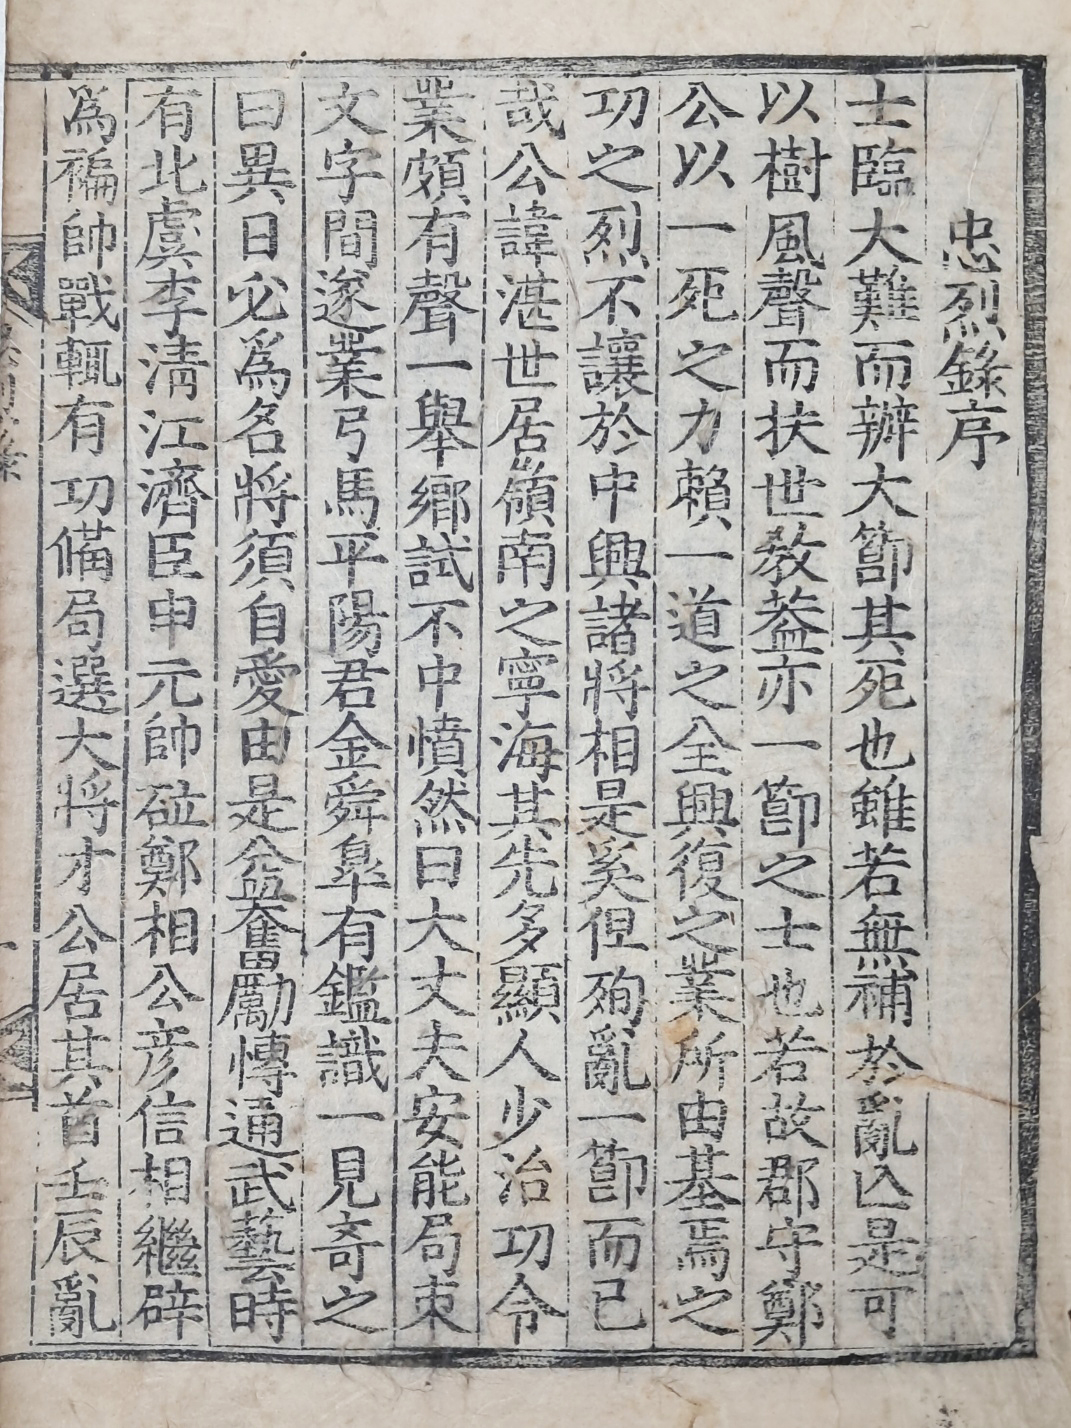 忠烈錄序
士臨大難而辦大節其死也雖若無補於亂亾是可
以樹風聲而扶世教葢亦一節之士也若故郡守鄭
公以一死之力賴一道之全興復之業所由基焉之
功之烈不讓於中興諸將相是奚但殉亂一節而已
哉公諱湛世居嶺南之寧海其先多顯人少治功令
業頗有聲一舉鄕試不中憤然曰大丈夫安能局束
文字間遂業弓馬平陽君金舜臯有鑑識一見奇之
曰異日必爲名將須自愛由是益奮勵慱通武藝時
有北虞李淸江濟臣申元帥砬鄭相公彦信相繼辟
爲褊帥戰輒有功備局選大將才公居其首壬辰亂